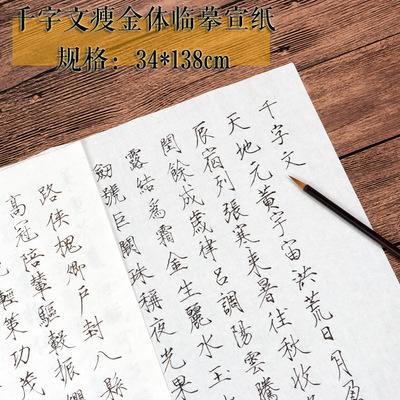 千字文瘦金体临摹宣纸
规格：34*138cm
千字文
天地元黃宇宙洪荒日月盈
辰宿列張寒來暑往秋收
閏餘成歲律呂調陽雲騰
露結為霜金生麗水玉
劒號巨闕珠稱夜光果
路俠槐卿戶封八縣
高冠陪輦驅轂振纓
輕策功茂